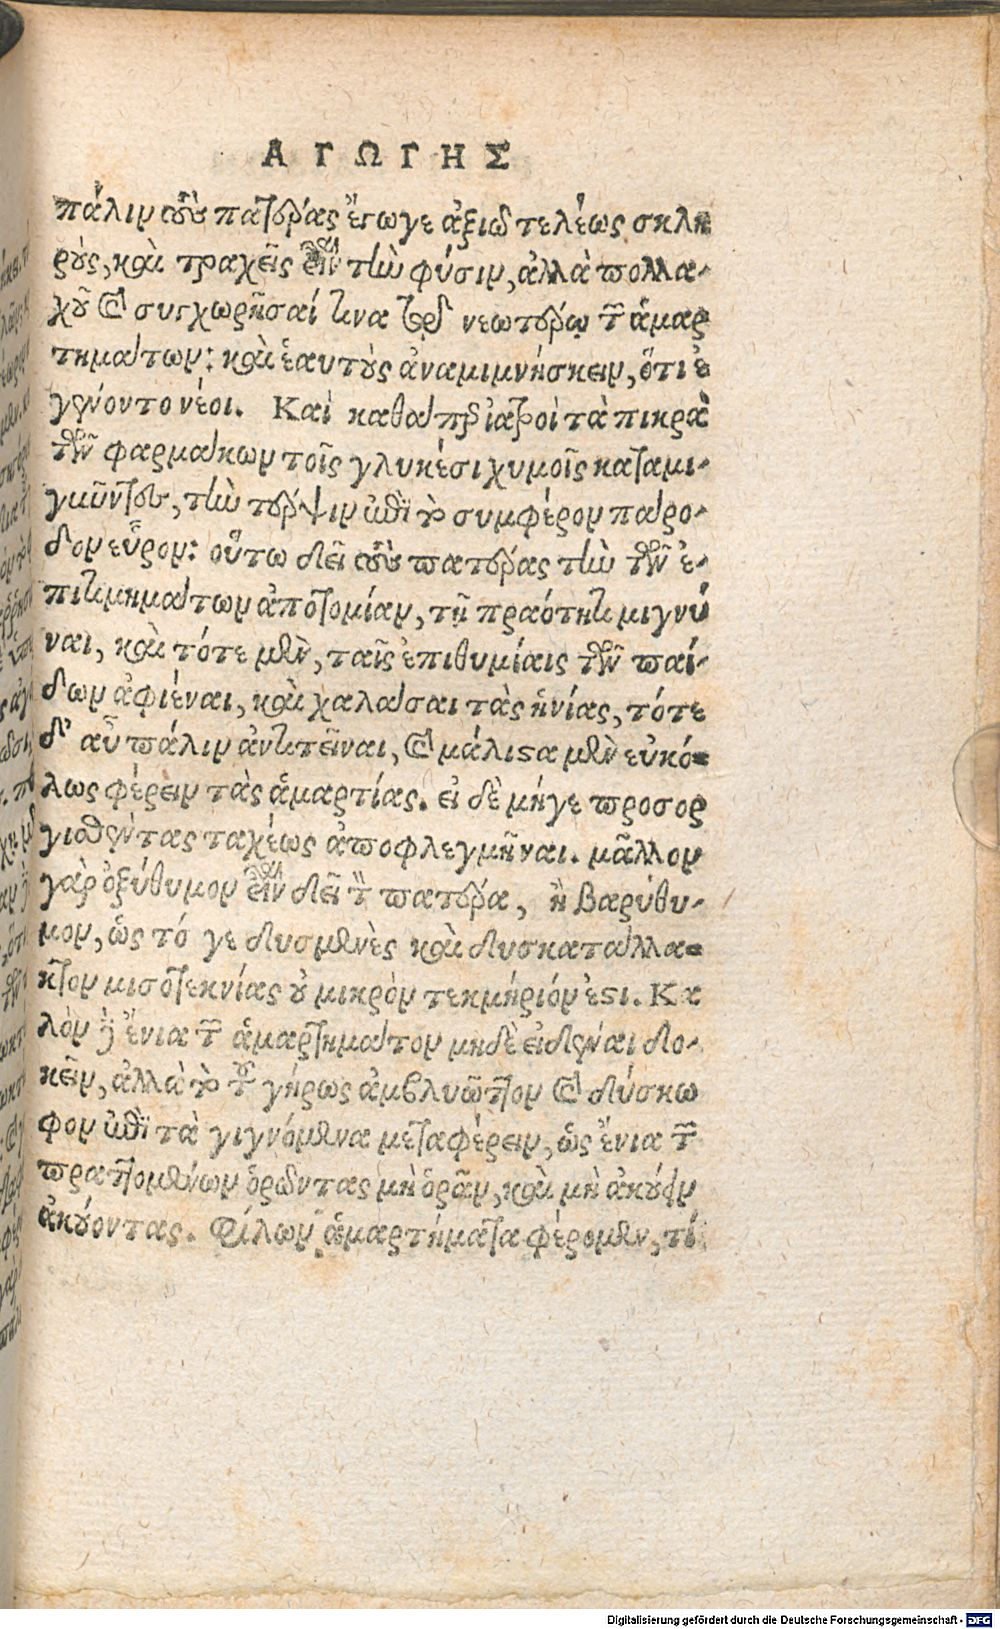 ΑΓΩΓΗΣ
πάλιν τοὺς πατέρας ἔγωγε ἀξιῶ τελέως σκλη
ροὺς, καὶ τραχεῖς εἶναι τὴν φύσιν, ἀλλὰ πολλα-
χοῦ καὶ συγχωρῆσαί τινα τῷ νεωτέρῳ τῶν ἁμαρ
τημάτων: καὶ ἑαυτοὺς ἀναμιμνήσκειν, ὅτι ἐ
γένοντο νέοι. Καὶ καθάπερ ἰατροὶ τὰ πικρὰ
τῶν φαρμάκων τοῖς γλυκέσι χυμοῖς καταμι-
γνῦντες, τὴν τέρψιν ἐπὶ τὸ συμφέρον πάρο-
δον εὗρον: οὕτω δεῖ τοὺς πατέρας τὴν τῶν ἐ-
πιτιμημάτων ἀποτομίαν, τῇ πραότητι μιγνύ
ναι, καὶ τότε μὲν, ταῖς ἐπιθυμίαις τῶν παί-
δων ἀφιέναι, καὶ χαλάσαι τὰς ἡνίας, τότε
δ' αὖ πάλιν ἀντιτεῖναι, καὶ μάλιστα μὲν εὐκό=
λως φέρειν τὰς ἁμαρτίας. εἰ δὲ μήγε προσορ
γισθέντας ταχέως ἀποφλεγμῆναι. μᾶλλον
γὰρ ὀξύθυμον εἶναι δεῖ τὸν πατέρα, ἢ βαρύθυ-
μον, ὡς τό γε δυσμενὲς καὶ δυσκατάλλα=
κτον μισοτεκνίας οὐ μικρὸν τεκμήριόν ἐστι. Κα
λὸν δὲ ἔνια τῶν ἁμαρτημάτον μηδὲ εἰδέναι δο-
κεῖν, ἀλλὰ τὸ τοῦ γήρως ἀμβλυῶττον καὶ δύσκω
φον ἐπὶ τὰ γιγνόμενα μεταφέρειν, ὡς ἔνια τῶν
πραττομένων ὁρῶντας μὴ ὁρᾶν, καὶ μὴ ἀκούειν
ἀκούοντας. Φίλων ἁμαρτήματα φέρομεν, τί
Digitalisierung gefördert durch die Deutsche Forschungsgemeinschaft - DFG